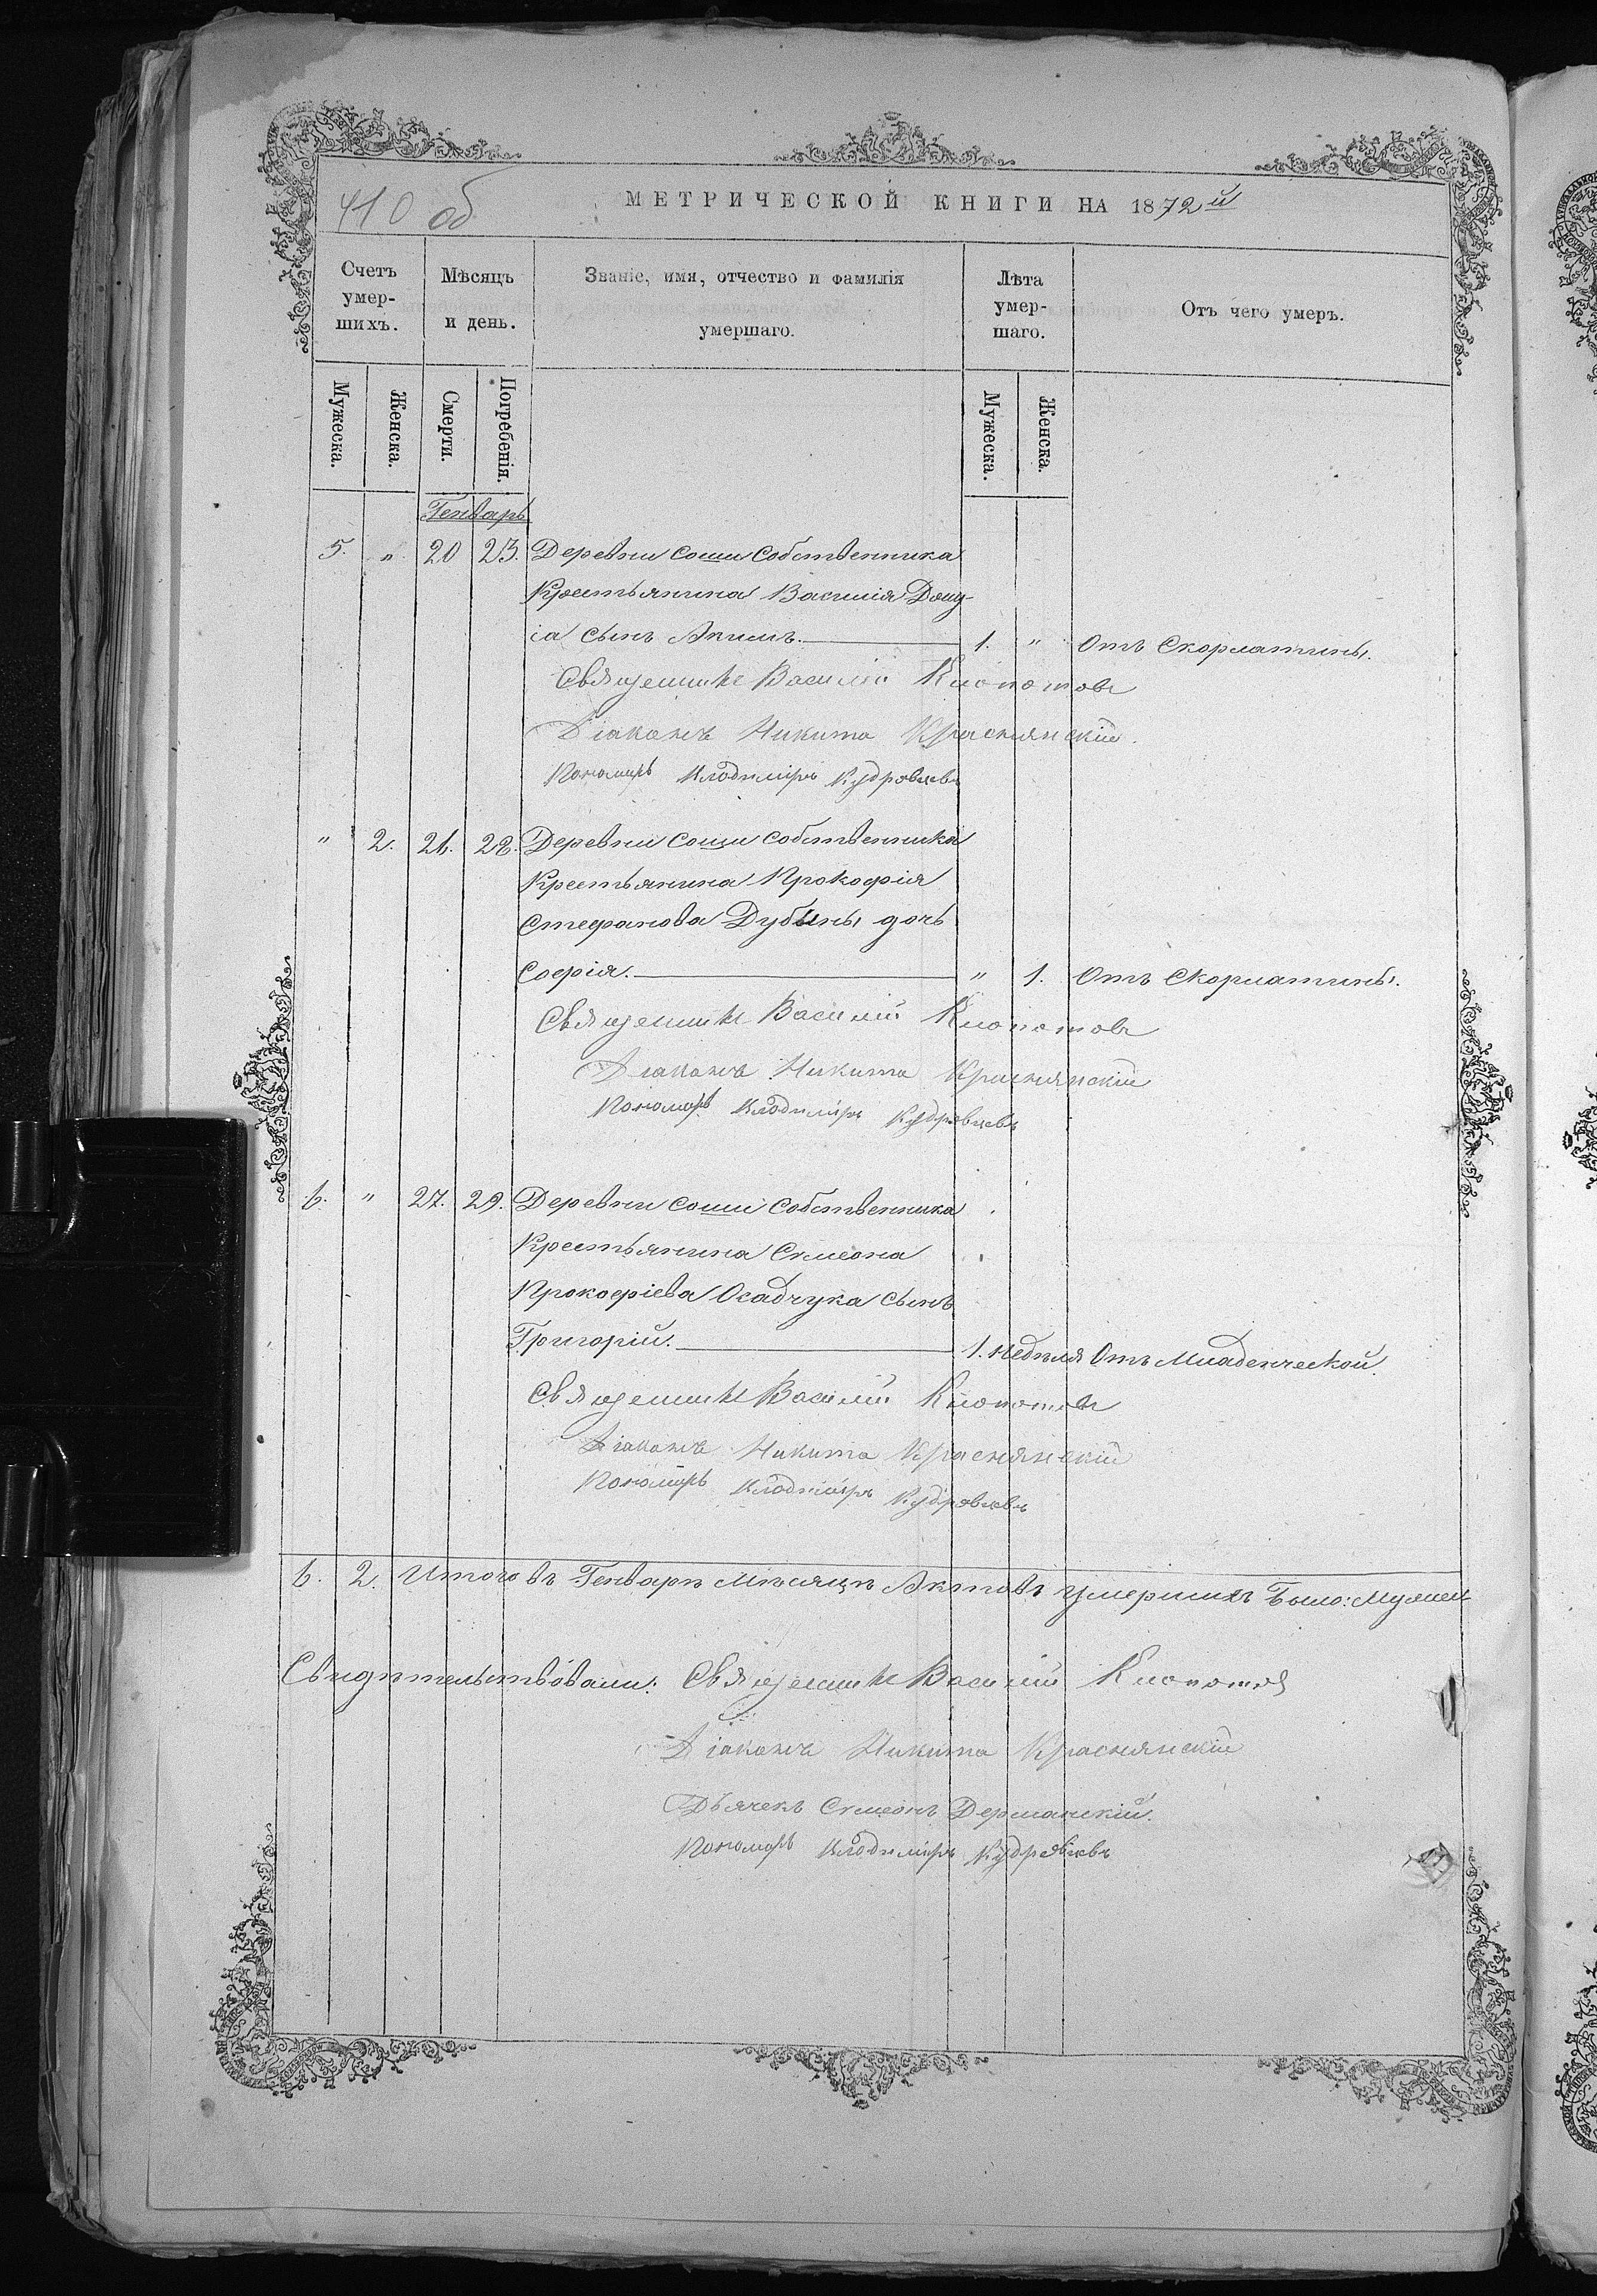 410 об
МЕТРИЧЕСКОЙ КНИГИ НА 1872й
Счетъ умер-шихъ.
Мѣсяцъ и день.
Званіе, имя, отчество и фамилія умершаго.
Лѣта умер-шаго.
Отъ чего умеръ.
Мужеска.
Женска.
Смерти.
Погребенія.
Мужеска.
Женска.
Генварь
5. " 20 23. Деревни Соши собственника
Крестьянина Василія
іа сынъ Акимъ. 1. " Отъ Скорлатины.
Священникъ Василій Клопотовъ
Діаконъ Никита Краснянскій.
Пономарь Владиміръ Кудрявцевъ
" 2. 26. 28. Деревни Соши собственника
Крестьянина Прокофія
Стефанова Дубины дочь
Софія. " 1. Отъ Скорлатины.
Священникъ Василій Клопотовъ
Діаконъ Никита Краснянскій
Пономарь Владиміръ Кудрявцевъ
6. " 27. 29. Деревни Соши собственника
Крестьянина Симеона
Прокофіева Осадчука сынъ
Григорій. 1. недѣля Отъ Младенческой.
Священникъ Василій Клопотовъ
Діаконъ Никита Краснянскій
Пономарь Владиміръ Кудрявцевъ
6. 2. Итого въ Генварѣ Мѣсяцѣ Актовъ умершихъ Было:
Свидѣтельствовали: Священникъ Василій Клопотов
Діаконъ Никита Краснянскій
Дьячекъ Симеонъ Дерманскій.
Пономарь Владиміръ Кудрявцевъ